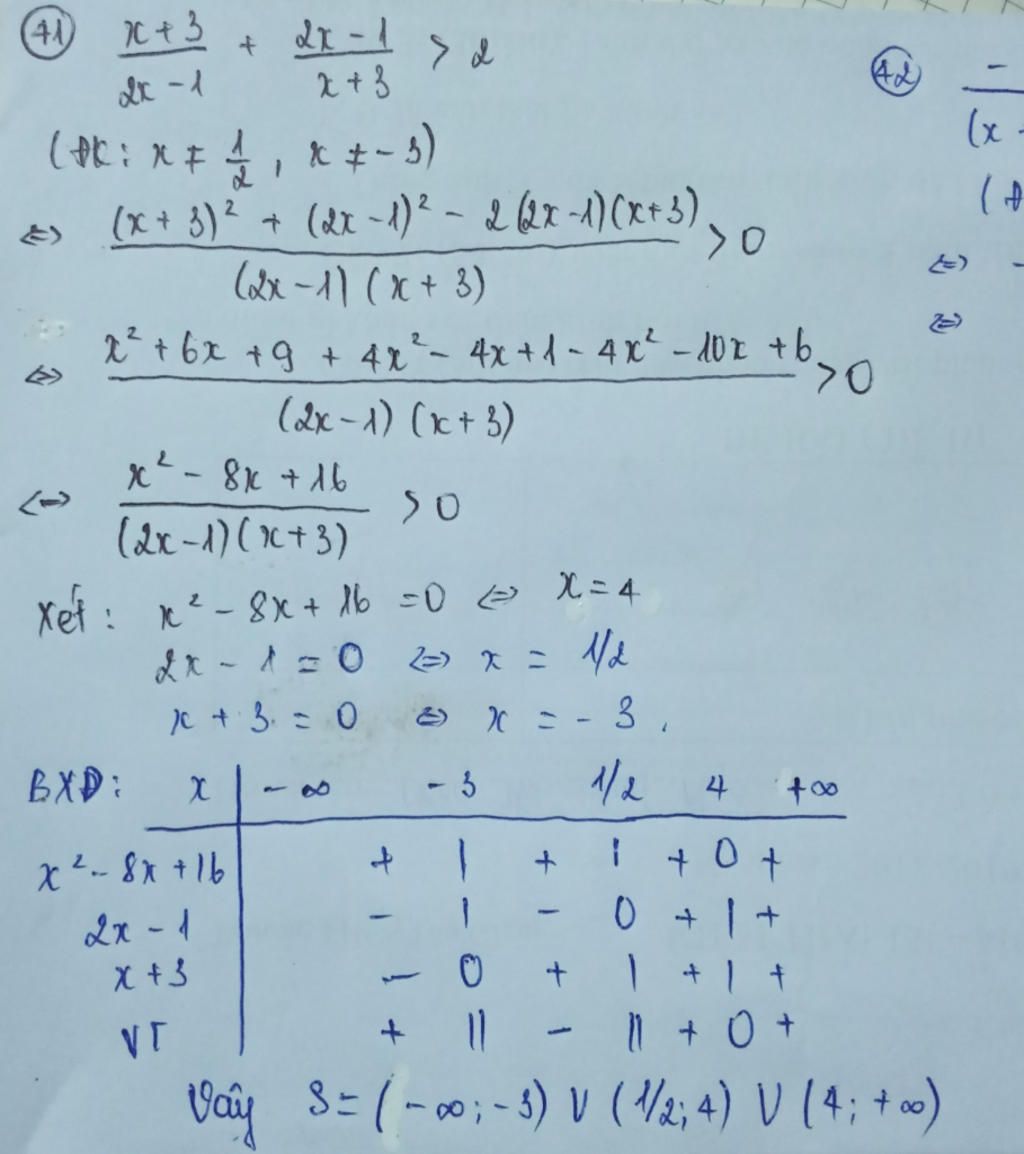 41 (x+3)/(2x-1) + (2x-1)/(x+3) > 2
(ĐK: x ≠ 1/2, x ≠ -3)
⇔ ((x+3)² + (2x-1)² - 2(2x-1)(x+3))/((2x-1)(x+3)) > 0
⇔ (x² + 6x + 9 + 4x² - 4x + 1 - 4x² - 10x + 6)/((2x-1)(x+3)) > 0
⇔ (x² - 8x + 16)/((2x-1)(x+3)) > 0
Xét: x² - 8x + 16 = 0 ⇔ x = 4
2x - 1 = 0 ⇔ x = 1/2
x + 3 = 0 ⇔ x = -3.
BXD: x | -∞ -3 1/2 4 +∞
x² - 8x + 16 | + | + | + 0 +
2x - 1 | - | - 0 + | +
x + 3 | - 0 + | + | +
VT | + || - || + 0 +
Vậy S = (-∞; -3) ∪ (1/2; 4) ∪ (4; +∞)
42 -
(x -
(Đ
⇔ -
⇔